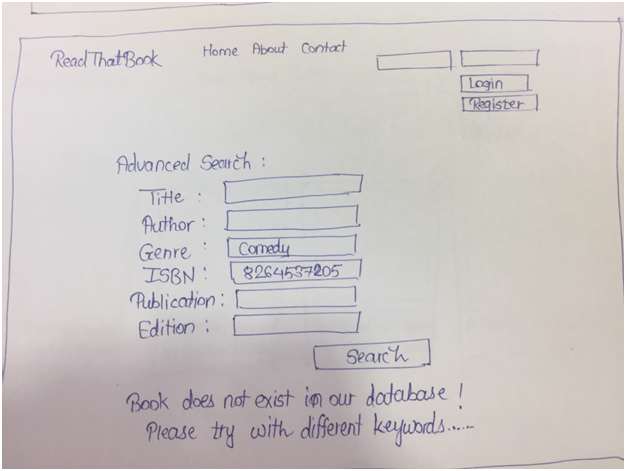 ReadThatBook Home About Contact
Login
Register
Advanced Search :
Title :
Author :
Genre : Comedy
ISBN : 8264537205
Publication :
Edition :
Search
Book does not exist in our database !
Please try with different keywords......